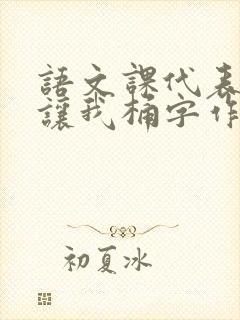 語文課代表
讓我桶字作
初夏冰